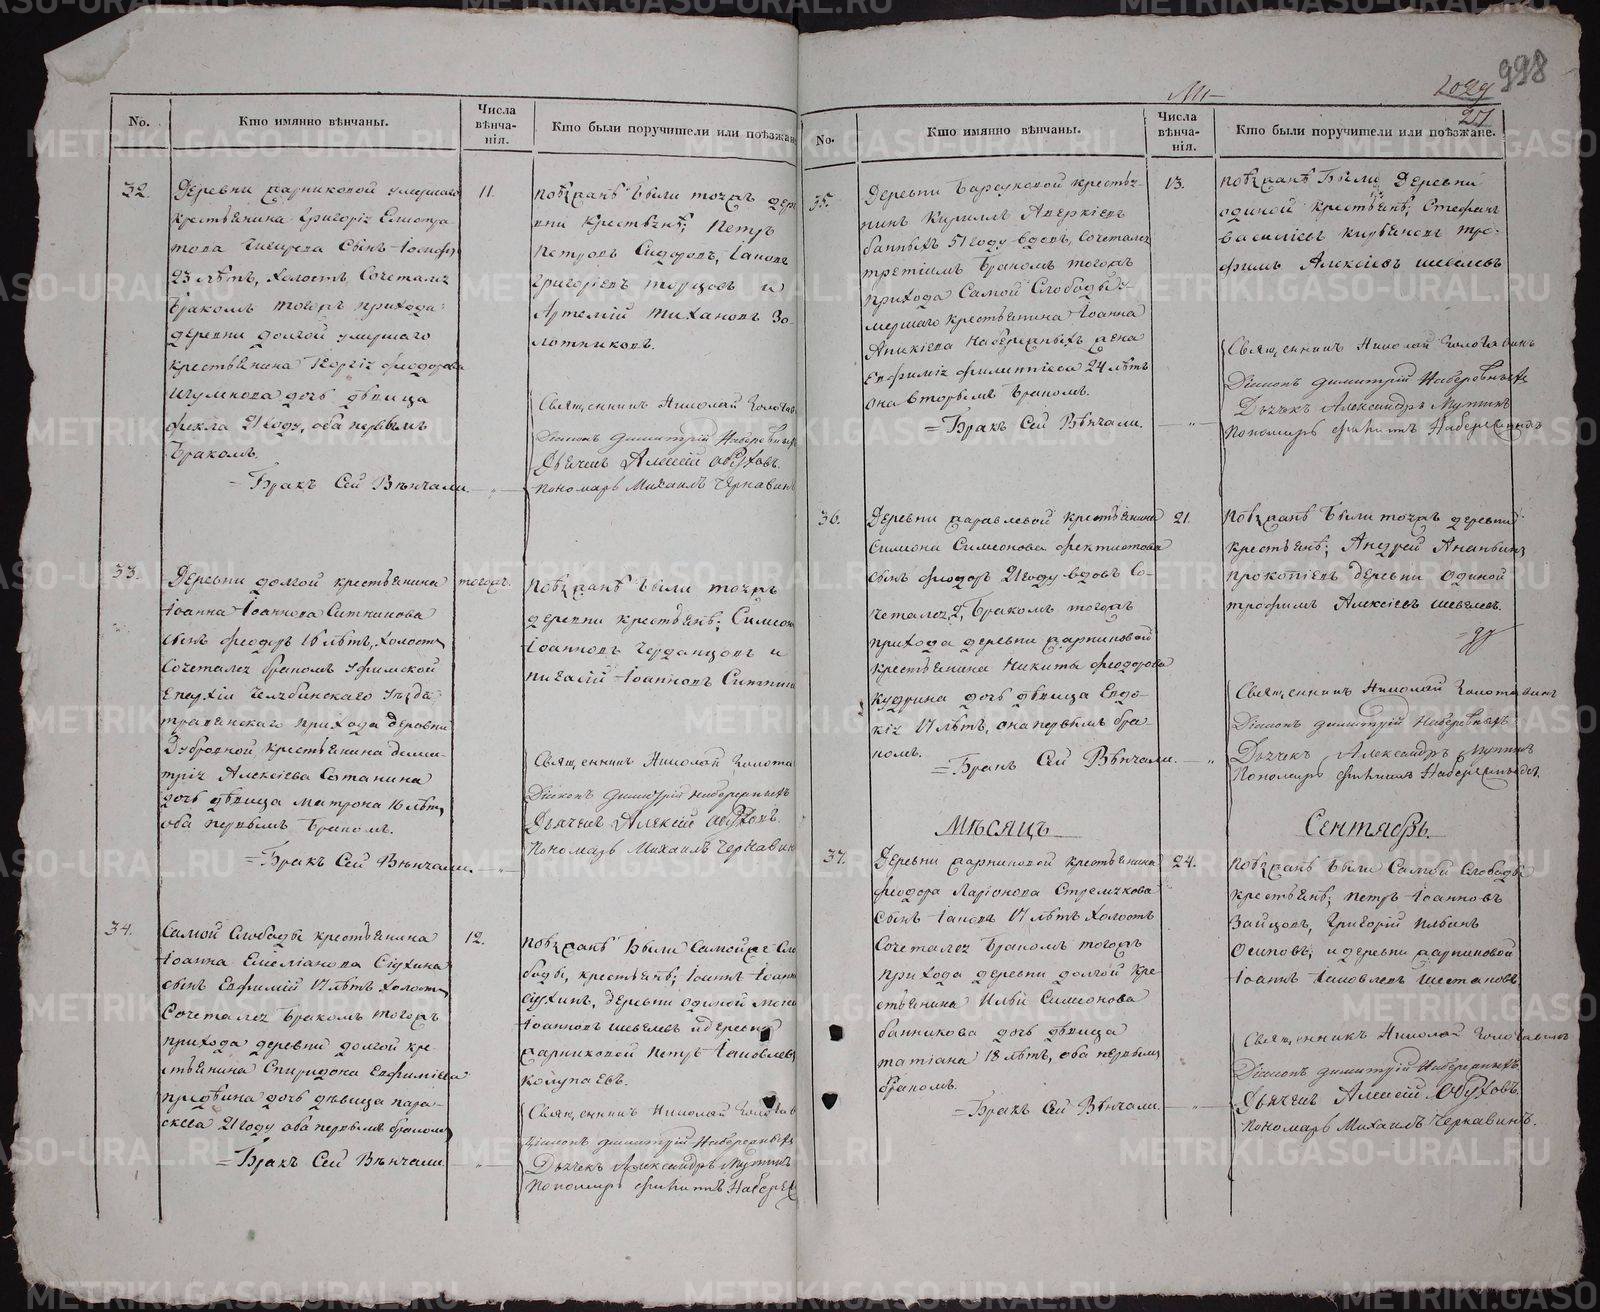 998
1029
27
No.
Кто имянно вѣнчаны.
Числа вѣнча-нія.
Кто были поручители или поѣзжан
32.
Деревни Карниковой умершаго
крестьянина Григорія
сынъ Іосифъ
23 лѣтъ, холостъ сочетался
бракомъ тогожъ прихода
деревни Долгой умершаго
крестьянина Георгія Феодорова
Игумнова дочь дѣвица
Фекла 21 году, оба первымъ
бракомъ.
= Бракъ Сей Вѣнчали.
11.
Поѣзжанѣ были тоежъ дере
вни крестьянѣ; Петръ
Петровъ Сидоровъ, Іаковъ
Григоріевъ и
Артемій Тихановъ Зо-
лотниковъ.
Священникъ Николай Голотов
Діаконъ Димитрій Набережныхъ
Дьячекъ Алексій Обуховъ.
Пономарь Михаилъ Чернавин
33.
Деревни Долгой крестьянина
Іоанна Іоаннова Ситникова
сынъ Феодоръ 18 лѣтъ, холостъ
Сочетался бракомъ Уфимской
Епархіи Челябинскаго Уѣзда
прихода деревни
Дубровной, крестьянина Дими-
трія Алексіева
дочь дѣвица Матрона 16 лѣтъ,
оба первымъ бракомъ.
= Бракъ Сей Вѣнчали.
тогожъ.
Поѣзжанѣ были тоежъ
деревни крестьянѣ; Симеон
Іоанновъ и
Іоанновъ Ситник
Священникъ Николай Голото
Діаконъ Димитрій Набережныхъ
Дьячекъ Алексій Обуховъ.
Пономарь Михаилъ Чернавин
34.
Самой Слободы крестьянина
Іоанна Емеліанова
сынъ Евфимій 17 лѣтъ холостъ
Сочетался бракомъ тогожъ
прихода деревни Долгой кре-
стьянина Спиридона Евфиміева
дочь дѣвица Пара-
скева 21 году оба первымъ бракомъ
= Бракъ Сей Вѣнчали.
12.
Поѣзжанѣ были Самойже Сло
боды, крестьянѣ; Іоаннъ Іоанн
деревни Одиной
Іоанновъ Шевелевъ и деревни
Карниковой Петръ Іаковлевъ
Колупаевъ.
Священникъ Николай Голотов
Діаконъ Димитрій Набережныхъ
Дьячекъ Александръ Мутинъ
Пономарь Набереж
No.
Кто имянно вѣнчаны.
Числа вѣнча-нія.
Кто были поручители или поѣзжане.
35.
Деревни крестья-
нинъ Кириллъ Аверкіевъ
Банныхъ 51 году вдовъ, сочетался
третіимъ бракомъ тогожъ
прихода Самой Слободы у-
мершаго крестьянина Іоанна
Аникіева Набережныхъ жена
Евфимія Филиппіева 24 лѣтъ
она вторымъ бракомъ.
= Бракъ Сей Вѣнчали.
13.
Поѣзжанѣ были Деревни
Одиной крестьянѣ; Стефанъ
Василіевъ Тро-
фимъ Алексіевъ Шевелевъ
Священникъ Николай Голотовинъ
Діаконъ Димитрій Набережныхъ
Дьячекъ Александръ Мутинъ
Пономарь Набережныхъ
36.
Деревни Журавлевой крестьянина
Симеона Симеонова Фектистова
сынъ Феодоръ 21 году вдовъ Со-
четался 2, бракомъ тогожъ
прихода деревни Карниковой
крестьянина Никиты Феодорова
Кудрина дочь дѣвица Евдо-
кія 17 лѣтъ, она первымъ бра-
комъ.
= Бракъ Сей Вѣнчали.
21.
Поѣзжанѣ были тоежъ деревни
крестьянѣ; Андрей Ананьинъ
Прокопіевъ деревни Одиной
Трофимъ Алексіевъ Шевелевъ.
Священникъ Николай Голотовинъ
Діаконъ Димитрій Набережныхъ
Дьячекъ Александръ Мутинъ
Пономарь Набережныхъ
Мѣсяцъ
Сентябрь.
37.
Деревни Карниковой крестьянина
Феодора Ларіонова Стрелчкова
сынъ Іаковъ 17 лѣтъ холостъ
Сочетался бракомъ тогожъ
прихода деревни Долгой кре-
стьянина Ильи Симеонова
Банникова дочь дѣвица
Татіана 18 лѣтъ, оба первымъ
бракомъ.
= Бракъ Сей Вѣнчали.
24.
Поѣзжанѣ были Самой Слободы
крестьянѣ; Петръ Іоанновъ
Зайцовъ, Григорій Ильинъ
Осиповъ, и деревни Карниковой
Іоаннъ Іаковлевъ Шестаковъ
Священникъ Николай Голотовинъ
Діаконъ Димитрій Набережныхъ.
Дьячекъ Алексій Обуховъ.
Пономарь Михаилъ Чернавинъ.
METRIKI.GASO-URAL.RU